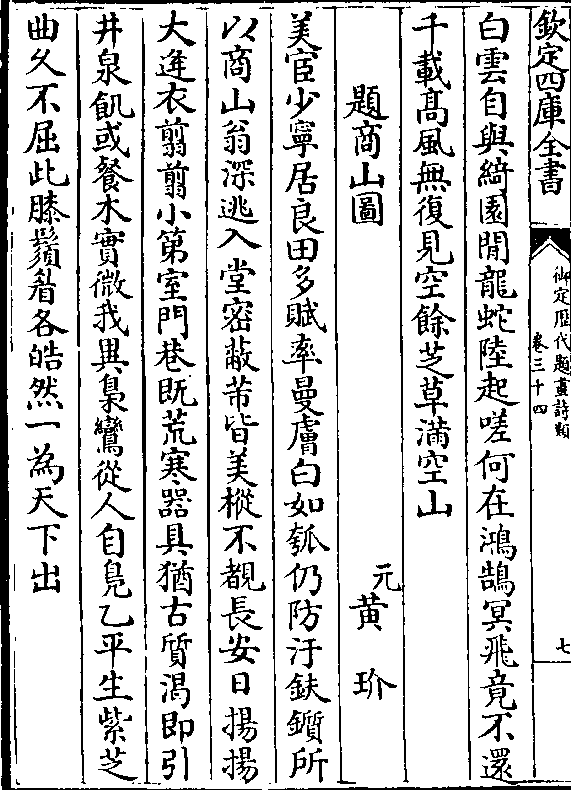 欽定四庫全書
御定歴代題畫詩類
卷三十四
七
白雲自與綺園閒龍蛇陸起嗟何在鴻鵠冥飛竟不還
千載髙風無復見空餘芝草滿空山
題商山圖
元黄玠
美宦少寧居良田多賦率曼膚白如瓠仍防汙鈇鑕所
以商山翁深逃入堂密蔽芾皆美樅不覩長安日揚揚
大逵衣翦翦小第室門巷既荒寒器具猶古質渴即引
井泉飢或餐木實微我異梟鸞從人自鳬乙平生紫芝
曲久不屈此膝鬚眉各皓然一為天下出